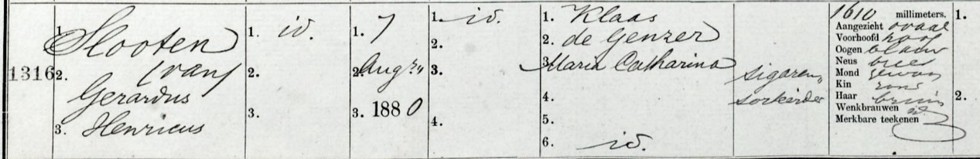 1316
1. Slooten
2. (van)
Gerardus
3. Henricus
1. id.
2.
3.
1. 7
2. Aug:
3. 1880
1. id.
2.
3.
4.
1. Klaas
2. de Genzer
3. Maria Catharina
4.
5.
6. id.
sigaren,
sorteerder
1610 millimeters.
Aangezicht ovaal
Voorhoofd hoog
Oogen blauw
Neus breed
Mond gewoon
Kin rond
Haar bruin
Wenkbrauwen id
Merkbare teekenen
1.
2.